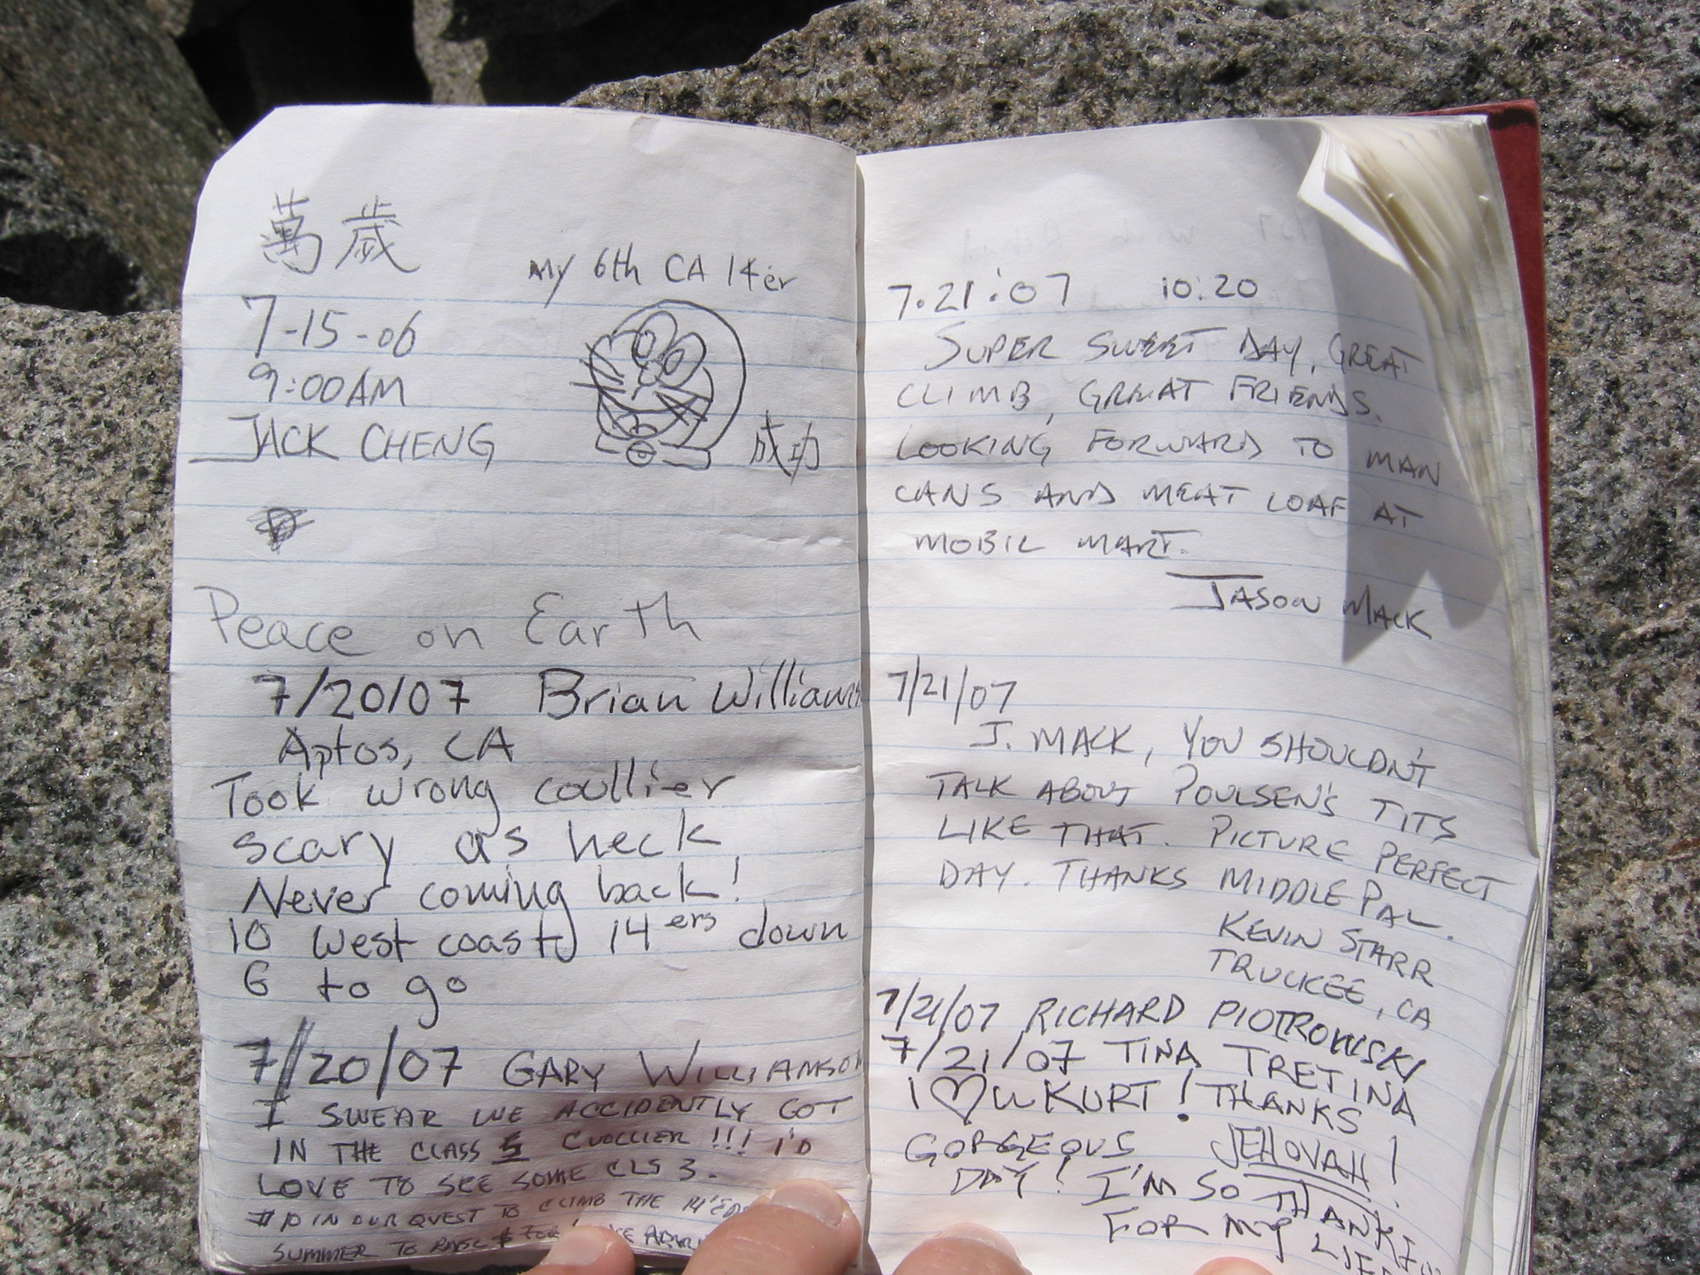 萬歲
my 6th CA 14er
7-15-06
9:00AM
JACK CHENG
成功
Peace on Earth
7/20/07 Brian Williams
Aptos, CA
Took wrong coullier
scary as heck
Never coming back!
10 west coast 14ers down
6 to go
7/20/07 GARY WILLIAMSON
I SWEAR WE ACCIDENTLY GOT
IN THE CLASS 5 CUOLLIER!!! I'D
LOVE TO SEE SOME CLS 3.
#10 IN OUR QUEST TO CLIMB THE 14'
SUMMER TO
7.21.'07 10:20
SUPER SWEET DAY, GREAT
CLIMB, GREAT FRIENDS.
LOOKING FORWARD TO MAN
CANS AND MEAT LOAF AT
MOBIL MART.
JASON MACK
7/21/07
J. MACK, YOU SHOULDN'T
TALK ABOUT POULSEN'S TITS
LIKE THAT. PICTURE PERFECT
DAY. THANKS MIDDLE PAL.
KEVIN STARR
TRUCKEE, CA
7/21/07 RICHARD PIOTROWSKI
7/21/07 TINA TRETINA
I ♡ U KURT! THANKS
GORGEOUS JEHOVAH!
DAY! I'M SO THANKFUL
FOR MY LIFE